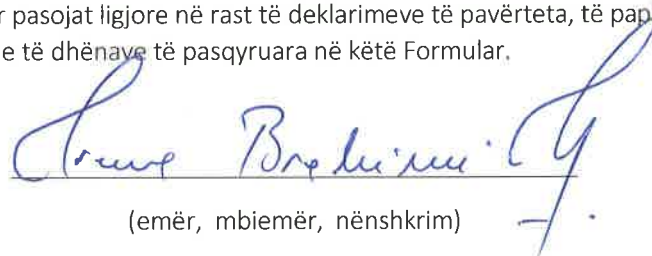 r pasojat ligjore në rast të deklarimeve të pavërteta, të pap
e të dhënave të pasqyruara në këtë Formular.
(emër, mbiemër, nënshkrim)